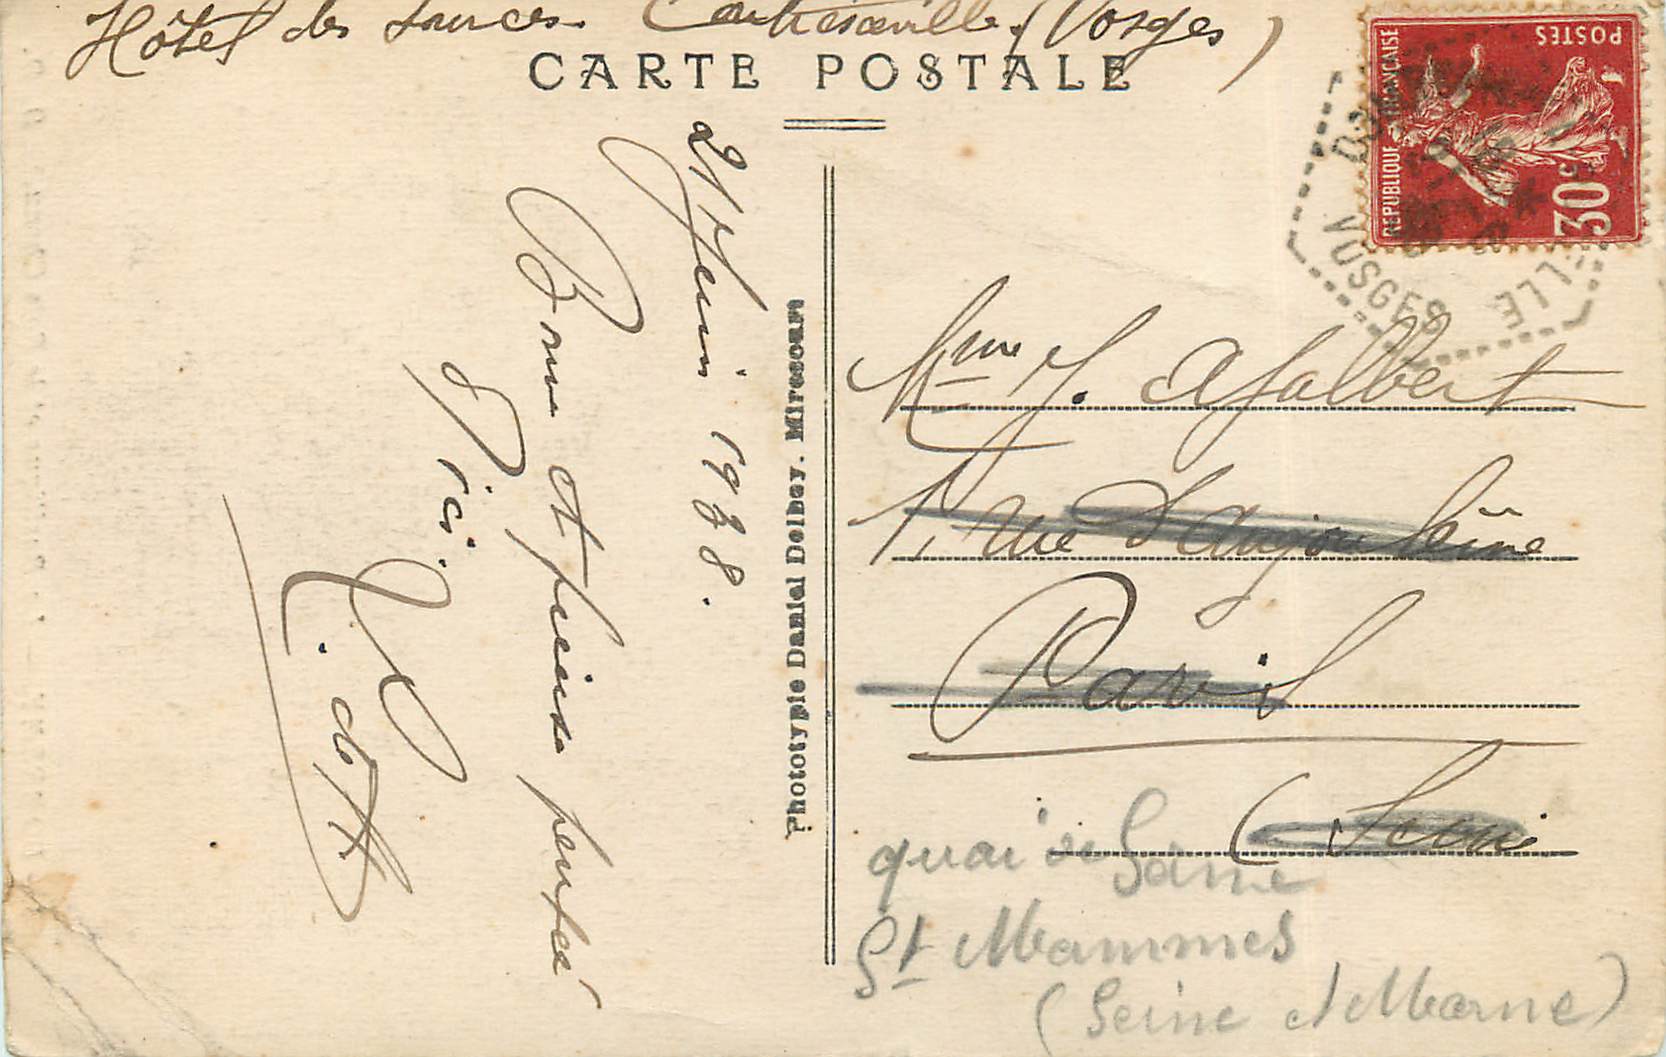 Hôtel des Sources. Contrexéville. (Vosges)
CARTE POSTALE
21 Juin 1938.
Bonne et pieuse pensée
d'ici.
Phototypie Daniel Delboy. Mirecourt
POSTES
REPUBLIQUE FRANÇAISE
30c
VOSGES
LLE
Mme J. Ajalbert
1, rue d'Anjou
Paris
(Seine
quai de Seine
St Mammes
(Seine et Marne)